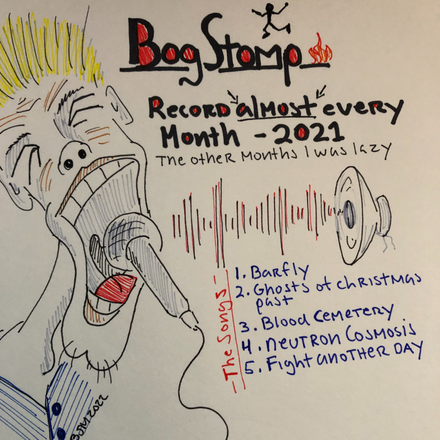 Bog Stomp
Record almost every
Month - 2021
The other months I was lazy
- The Songs -
1. Barfly
2. Ghosts of christmas
past
3. Blood Cemetery
4. neutron Cosmosis
5. Fight another DAY
BJM 2022